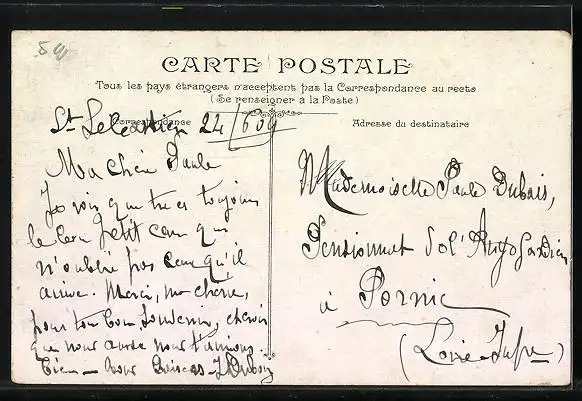 59
CARTE POSTALE
Tous les pays étrangers n'acceptent pas la Correspondance au recto
(Se renseigner à la Poste)
Correspondance
Adresse du destinataire
St Sébastien 22/6 09
Ma chère Paule
Je vois que tu es toujours
le bon petit cœur qui
n'oublie pas ceux qu'il
aime. Merci, ma chérie,
pour ton bon souvenir,
que nous t'aimons
bien
Mademoiselle Paule Dubois,
Pensionnat de l'Ange Gardien
à Pornic
(Loire-Infre)